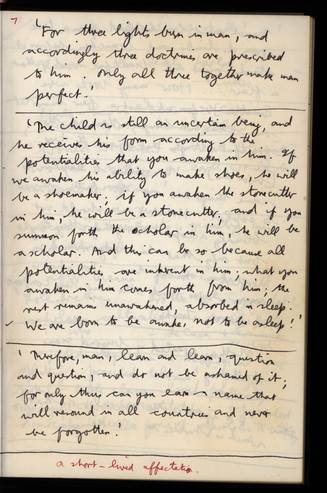 7
'For three lights burn in man, and
accordingly three doctrines are prescribed
to him. Only all three together make man
perfect.'
'The child is still an uncertain being, and
he receives his form according to the
potentialities that you awaken in him. If
we awaken his ability to make shoes, he will
be a shoemaker; if you awaken the stonecutter
in him, he will be a stonecutter, and if you
summon forth the scholar in him, he will be
a scholar. And this can be so because all
potentialities are inherent in him; what you
awaken in him comes forth from him; the
rest remains unawakened, absorbed in sleep.
We are born to be awake, not to be asleep!'
'Therefore, man, learn and learn, question
and question, and do not be ashamed of it;
for only thus can you earn a name that
will resound in all countries and never
be forgotten.'
a short-lived affectation.